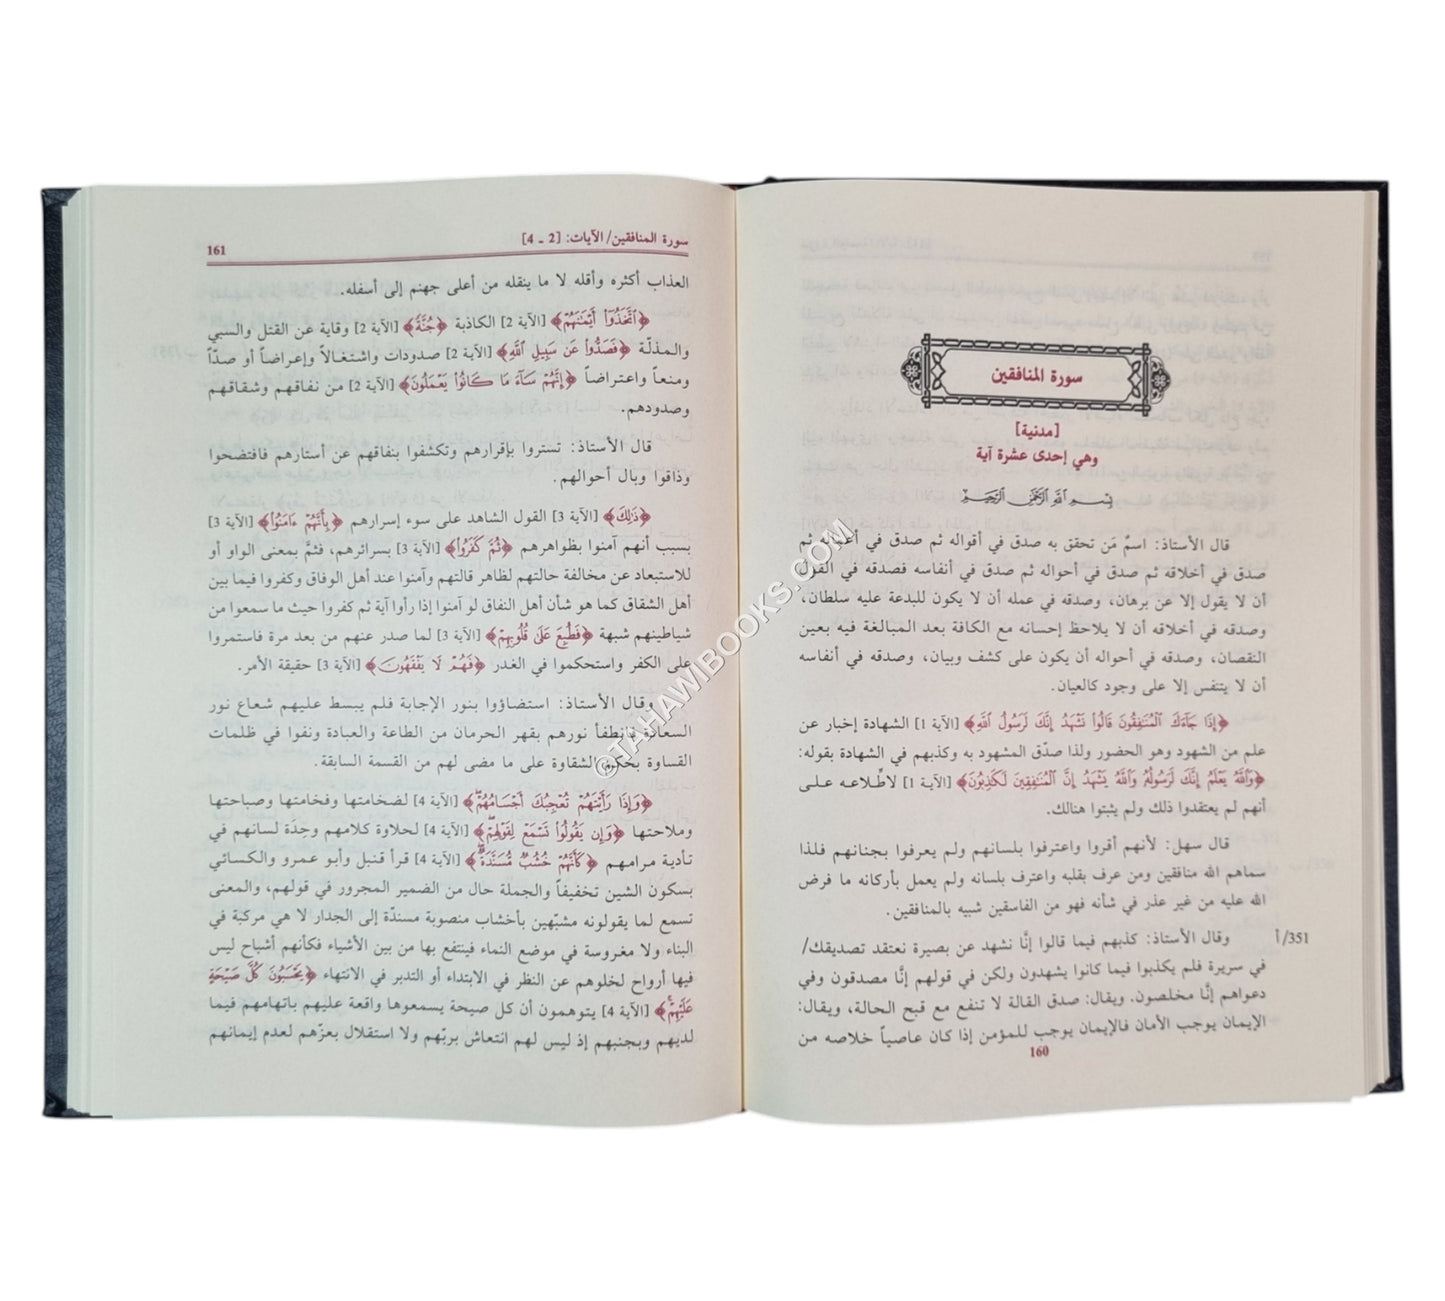 سورة المنافقين
[مدنية]
وهي إحدى عشرة آية
بِسْمِ اللَّهِ الرَّحْمَٰنِ الرَّحِيمِ
قال الأستاذ: اسمٌ مَن تحقق به صدق في أقواله ثم صدق في أعماله ثم
صدق في أخلاقه ثم صدق في أحواله ثم صدق في أنفاسه فصدقه في القول
أن لا يقول إلا عن برهان، وصدقه في عمله أن لا يكون للبدعة عليه سلطان،
وصدقه في أخلاقه أن لا يلاحظ إحسانه مع الكافة بعد المبالغة فيه بعين
النقصان، وصدقه في أحواله أن يكون على كشف وبيان، وصدقه في أنفاسه
أن لا يتنفس إلا على وجود كالعيان.
﴿إِذَا جَاءَكَ الْمُنَافِقُونَ قَالُوا نَشْهَدُ إِنَّكَ لَرَسُولُ اللَّهِ﴾ [الآية 1] الشهادة إخبار عن
علم من الشهود وهو الحضور ولذا صدّق المشهود به وكذبهم في الشهادة بقوله:
﴿وَاللَّهُ يَعْلَمُ إِنَّكَ لَرَسُولُهُ وَاللَّهُ يَشْهَدُ إِنَّ الْمُنَافِقِينَ لَكَاذِبُونَ﴾ [الآية 1] لاطّلاعه على
أنهم لم يعتقدوا ذلك ولم يثبتوا هنالك.
قال سهل: لأنهم أقروا واعترفوا بلسانهم ولم يعرفوا بجنانهم فلذا
سماهم الله منافقين ومن عرف بقلبه واعترف بلسانه ولم يعمل بأركانه ما فرض
الله عليه من غير عذر في شأنه فهو من الفاسقين شبيه بالمنافقين.
وقال الأستاذ: كذبهم فيما قالوا إنَّا نشهد عن بصيرة نعتقد تصديقك/ 351/أ
في سريرة فلم يكذبوا فيما كانوا يشهدون ولكن في قولهم إنَّا مصدقون وفي
دعواهم إنَّا مخلصون. ويقال: صدق القالة لا تنفع مع قبح الحالة، ويقال:
الإيمان يوجب الأمان فالإيمان يوجب للمؤمن إذا كان عاصياً خلاصه من
160
سورة المنافقين/ الآيات: [2 ـ 4] 161
العذاب أكثره وأقله لا ما ينقله من أعلى جهنم إلى أسفله.
﴿اتَّخَذُوا أَيْمَانَهُمْ﴾ [الآية 2] الكاذبة ﴿جُنَّةً﴾ [الآية 2] وقاية عن القتل والسبي
والمذلّة ﴿فَصَدُّوا عَن سَبِيلِ اللَّهِ﴾ [الآية 2] صدودات واشتغالاً وإعراضاً أو صدّاً
ومنعاً واعتراضاً ﴿إِنَّهُمْ سَاءَ مَا كَانُوا يَعْمَلُونَ﴾ [الآية 2] من نفاقهم وشقاقهم
وصدودهم.
قال الأستاذ: تستروا بإقرارهم وتكشفوا بنفاقهم عن أستارهم فافتضحوا
وذاقوا وبال أحوالهم.
﴿ذَٰلِكَ﴾ [الآية 3] القول الشاهد على سوء إسرارهم ﴿بِأَنَّهُمْ ءَامَنُوا﴾ [الآية 3]
بسبب أنهم آمنوا بظواهرهم ﴿ثُمَّ كَفَرُوا﴾ [الآية 3] بسرائرهم، فثمَّ بمعنى الواو أو
للاستبعاد عن مخالفة حالتهم لظاهر قالتهم وآمنوا عند أهل الوفاق وكفروا فيما بين
أهل الشقاق كما هو شأن أهل النفاق لو آمنوا إذا رأوا آية ثم كفروا حيث ما سمعوا من
شياطينهم شبهة ﴿فَطُبِعَ عَلَىٰ قُلُوبِهِمْ﴾ [الآية 3] لما صدر عنهم من بعد مرة فاستمروا
على الكفر واستحكموا في الغدر ﴿فَهُمْ لَا يَفْقَهُونَ﴾ [الآية 3] حقيقة الأمر.
وقال الأستاذ: استضاؤوا بنور الإجابة فلم يبسط عليهم شعاع نور
السعادة فانطفأ نورهم بقهر الحرمان من الطاعة والعبادة ونفوا في ظلمات
القساوة بحكم الشقاوة على ما مضى لهم من القسمة السابقة.
﴿وَإِذَا رَأَيْتَهُمْ تُعْجِبُكَ أَجْسَامُهُمْ﴾ [الآية 4] لضخامتها وفخامتها وصباحتها
وملاحتها ﴿وَإِن يَقُولُوا تَسْمَعْ لِقَوْلِهِمْ﴾ [الآية 4] لحلاوة كلامهم وحِدَة لسانهم في
تأدية مرامهم ﴿كَأَنَّهُمْ خُشُبٌ مُّسَنَّدَةٌ﴾ [الآية 4] قرأ قنبل وأبو عمرو والكسائي
بسكون الشين تخفيفاً والجملة حال من الضمير المجرور في قولهم، والمعنى
تسمع لما يقولونه مشبّهين بأخشاب منصوبة مسندّة إلى الجدار لا هي مركبة في
البناء ولا مغروسة في موضع النماء فينتفع بها من بين الأشياء فكأنهم أشباح ليس
فيها أرواح لخلوهم عن النظر في الابتداء أو التدبر في الانتهاء ﴿يَحْسَبُونَ كُلَّ صَيْحَةٍ
عَلَيْهِمْ﴾ [الآية 4] يتوهمون أن كل صيحة يسمعوها واقعة عليهم باتهامهم فيما
لديهم وبجنبهم إذ ليس لهم انتعاش بربّهم ولا استقلال بعزّهم لعدم إيمانهم
©TAHAWIBOOKS.COM